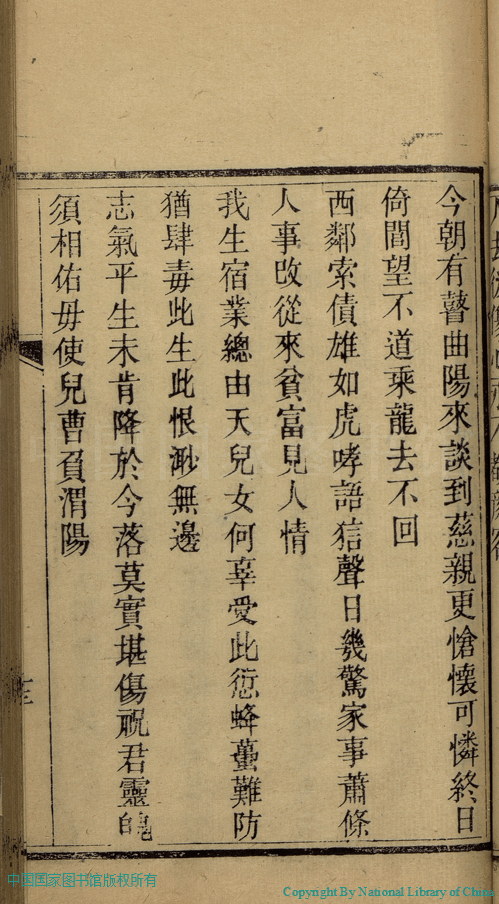 今朝有瞽曲陽來談到慈親更愴懷可憐終日
倚閭望不道乘龍去不回
西鄰索債雄如虎哮語狺聲日幾驚家事蕭條
人事改從來貧富見人情
我生宿業總由天兒女何辜受此愆蜂蠆難防
猶肆毒此生此恨渺無邊
志氣平生未肯降於今落莫實堪傷祝君靈魄
須相佑毋使兒曹負渭陽
中国国家图书馆版权所有
Copyright By National Library of China